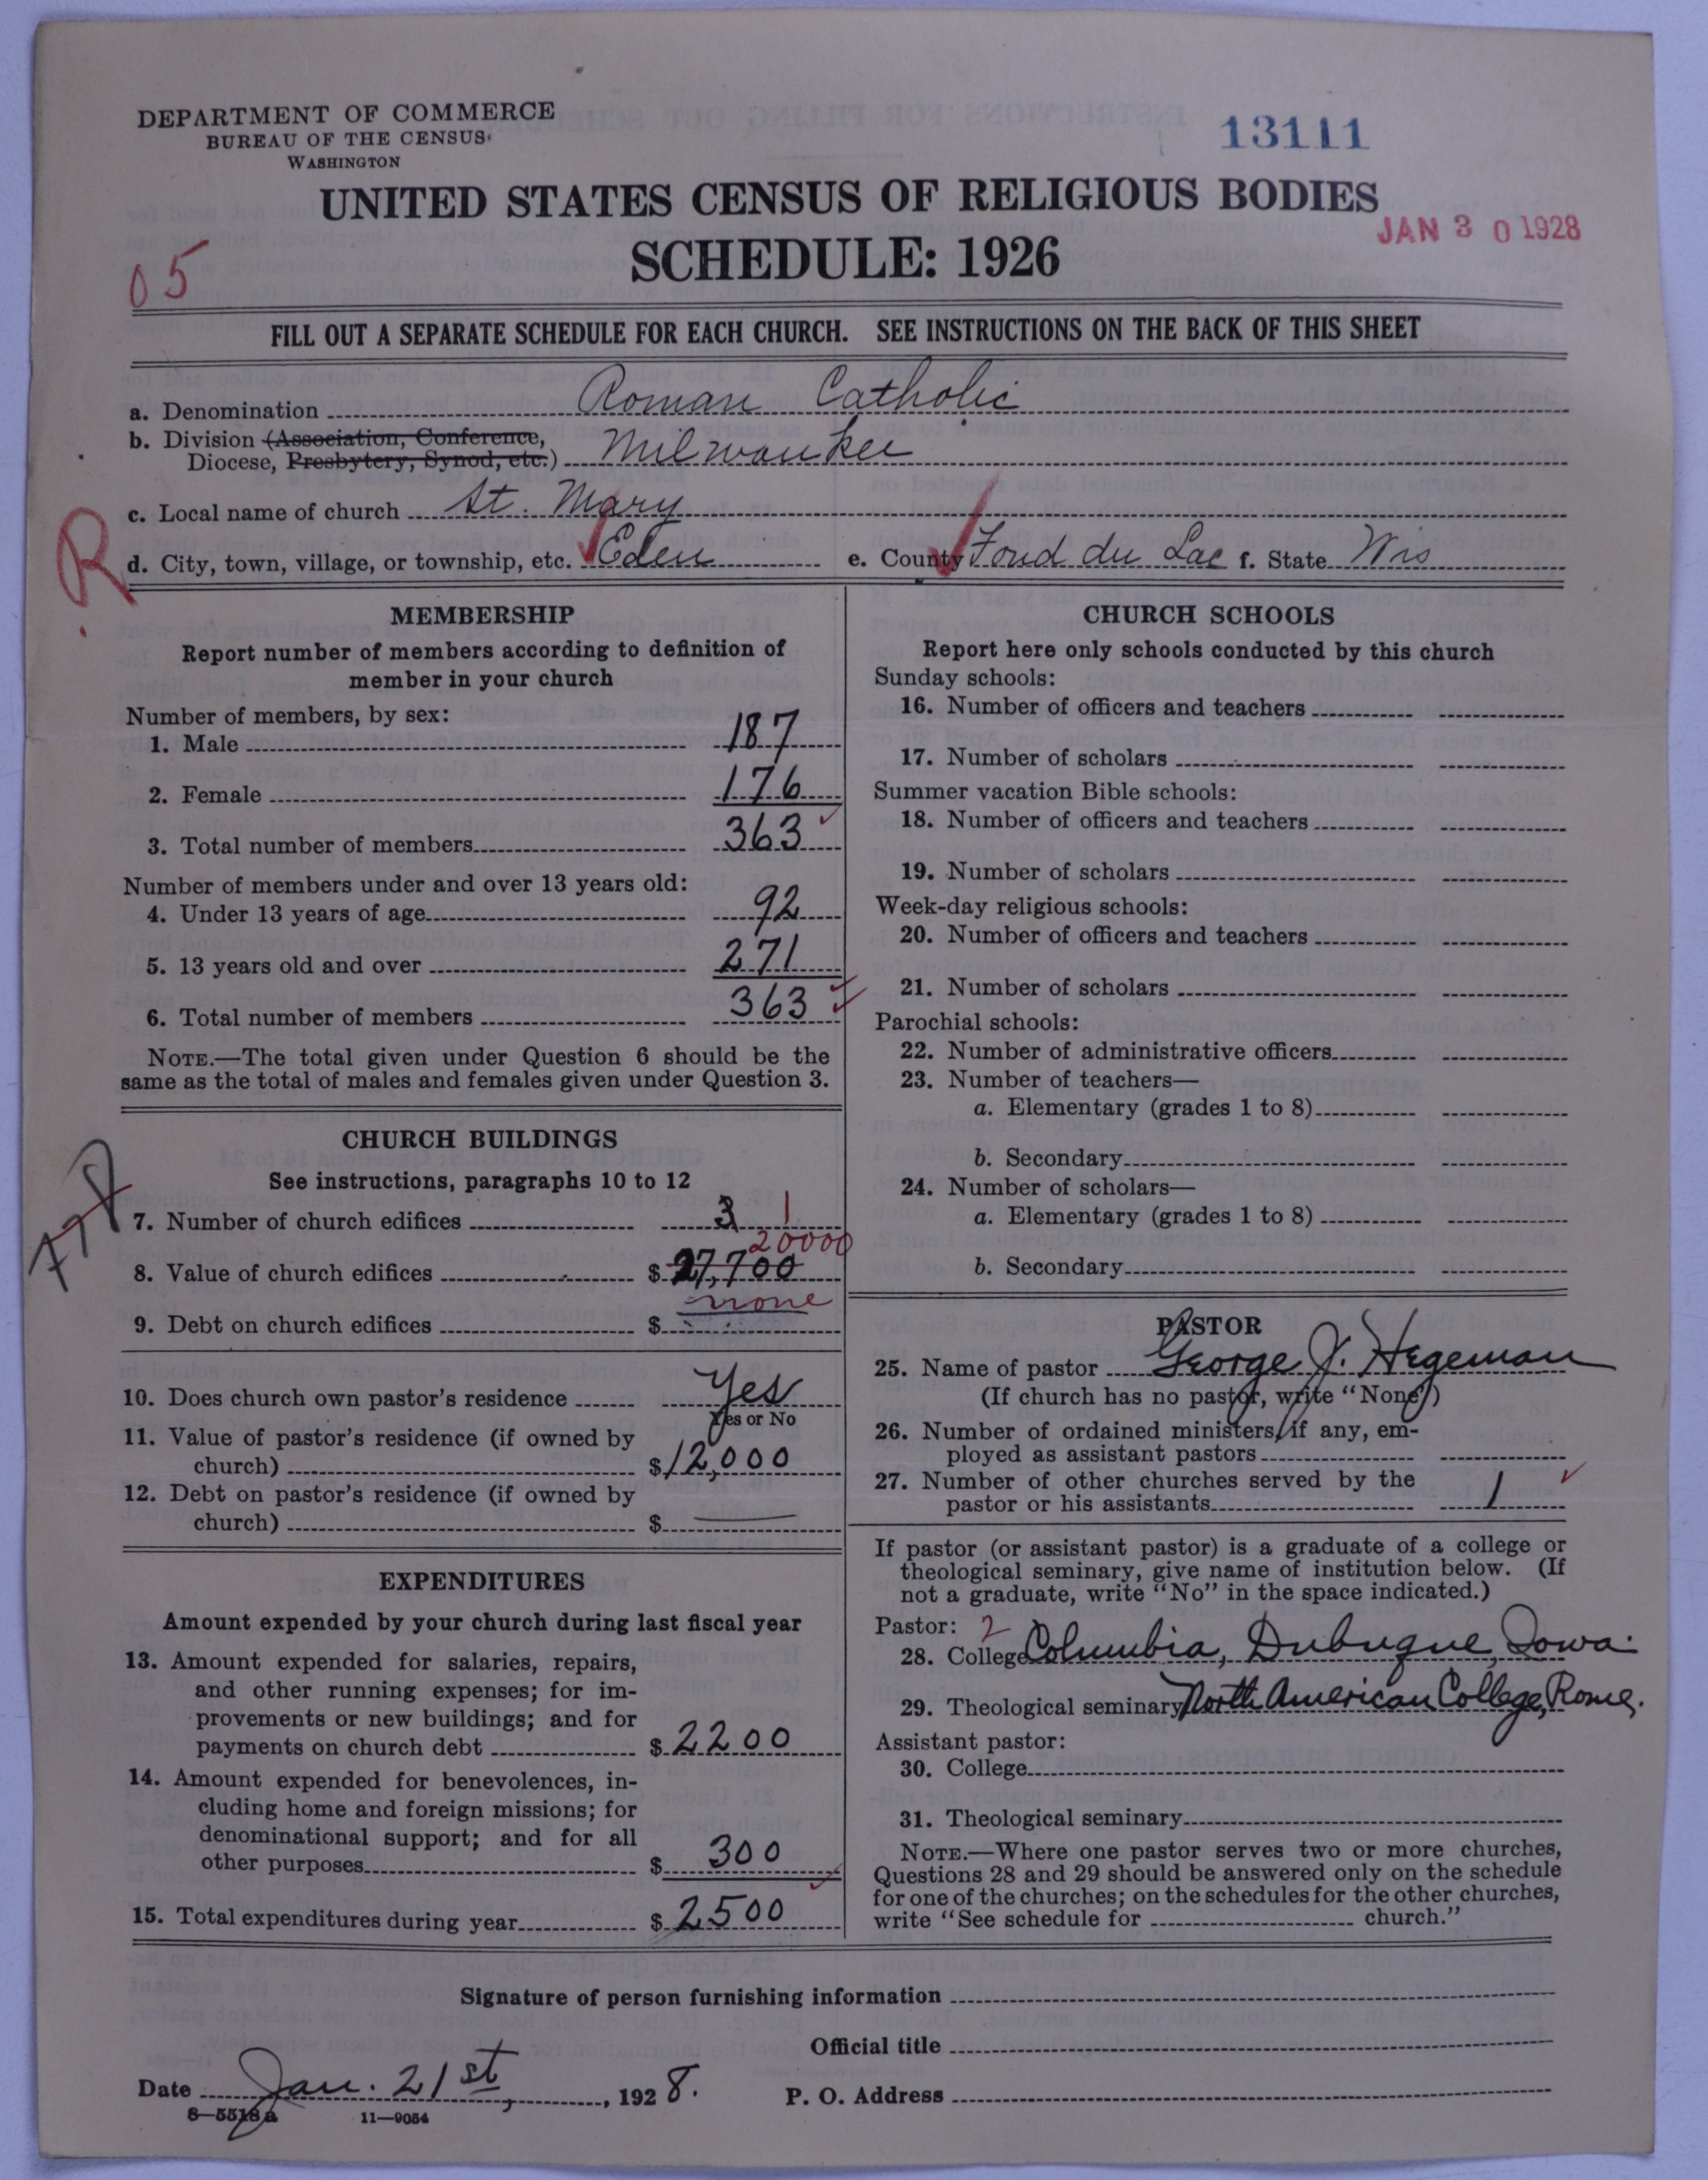 DEPARTMENT OF COMMERCE
BUREAU OF THE CENSUS
WASHINGTON
13111
UNITED STATES CENSUS OF RELIGIOUS BODIES
JAN 30 1928
SCHEDULE: 1926
05
FILL OUT A SEPARATE SCHEDULE FOR EACH CHURCH. SEE INSTRUCTIONS ON THE BACK OF THIS SHEET
a. Denomination Roman Catholic
b. Division (Association, Conference,
Diocese, Presbytery, Synod, etc.) Milwaukee
c. Local name of church St. Mary
R
d. City, town, village, or township, etc. Eden e. County Fond du Lac f. State Wis
MEMBERSHIP
Report number of members according to definition of
member in your church
Number of members, by sex:
1. Male 187
2. Female 176
3. Total number of members 363
Number of members under and over 13 years old:
4. Under 13 years of age 92
5. 13 years old and over 271
6. Total number of members 363
NOTE.—The total given under Question 6 should be the
same as the total of males and females given under Question 3.
CHURCH BUILDINGS
See instructions, paragraphs 10 to 12
7. Number of church edifices 3 1
20000
8. Value of church edifices $ 27,700
none
9. Debt on church edifices $
10. Does church own pastor's residence Yes
Yes or No
11. Value of pastor's residence (if owned by
church) $12,000
12. Debt on pastor's residence (if owned by
church) $ —
EXPENDITURES
Amount expended by your church during last fiscal year
13. Amount expended for salaries, repairs,
and other running expenses; for im-
provements or new buildings; and for
payments on church debt $ 2200
14. Amount expended for benevolences, in-
cluding home and foreign missions; for
denominational support; and for all
other purposes $ 300
15. Total expenditures during year $ 2500
CHURCH SCHOOLS
Report here only schools conducted by this church
Sunday schools:
16. Number of officers and teachers
17. Number of scholars
Summer vacation Bible schools:
18. Number of officers and teachers
19. Number of scholars
Week-day religious schools:
20. Number of officers and teachers
21. Number of scholars
Parochial schools:
22. Number of administrative officers
23. Number of teachers—
a. Elementary (grades 1 to 8)
b. Secondary
24. Number of scholars—
a. Elementary (grades 1 to 8)
b. Secondary
PASTOR
25. Name of pastor George J. Hegeman
(If church has no pastor, write "None")
26. Number of ordained ministers, if any, em-
ployed as assistant pastors
27. Number of other churches served by the
pastor or his assistants 1
If pastor (or assistant pastor) is a graduate of a college or
theological seminary, give name of institution below. (If
not a graduate, write "No" in the space indicated.)
Pastor: 2
28. College Columbia, Dubuque, Iowa.
29. Theological seminary North American College, Rome.
Assistant pastor:
30. College
31. Theological seminary
NOTE.—Where one pastor serves two or more churches,
Questions 28 and 29 should be answered only on the schedule
for one of the churches; on the schedules for the other churches,
write "See schedule for church."
Signature of person furnishing information
Official title
Date Jan. 21st, 1928. P. O. Address
8—5518a 11—9054